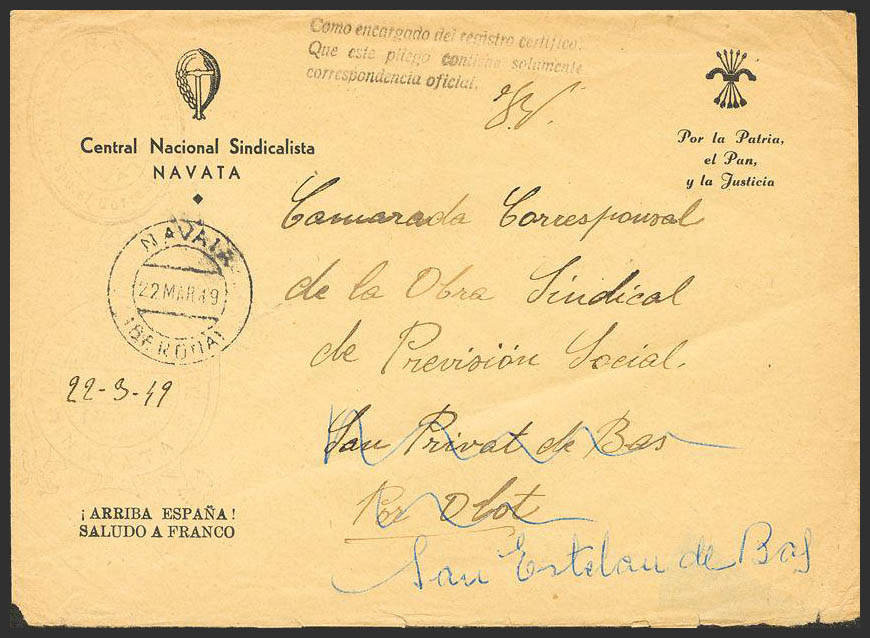 Como encargado del registro certifico:
Que este pliego contiene solamente
correspondencia oficial.
Central Nacional Sindicalista
NAVATA
Por la Patria,
el Pan,
y la Justicia
Camarada Corresponsal
de la Obra Sindical
de Previsión Social.
San Privat de Bas
Por Olot
San Estelan de Bas
NAVATA
22 MAR 49
(GERONA)
22-3-49
¡ARRIBA ESPAÑA!
SALUDO A FRANCO